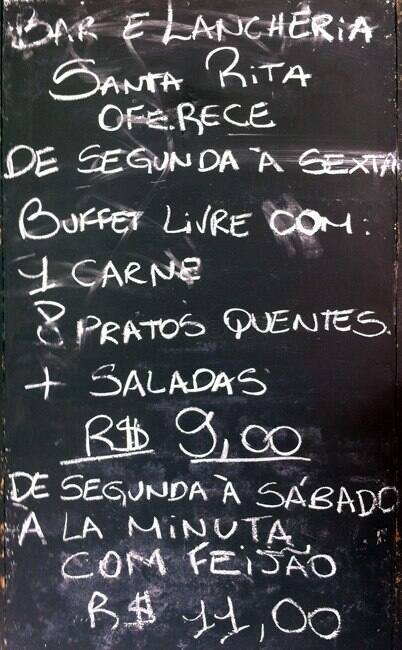 BAR E LANCHERIA
SANTA RITA
OFERECE
DE SEGUNDA À SEXTA
BUFFET LIVRE COM:
1 CARNE
8 PRATOS QUENTES.
+ SALADAS
R$ 9,00
DE SEGUNDA À SÁBADO
À LA MINUTA
COM FEIJÃO
R$ 11,00